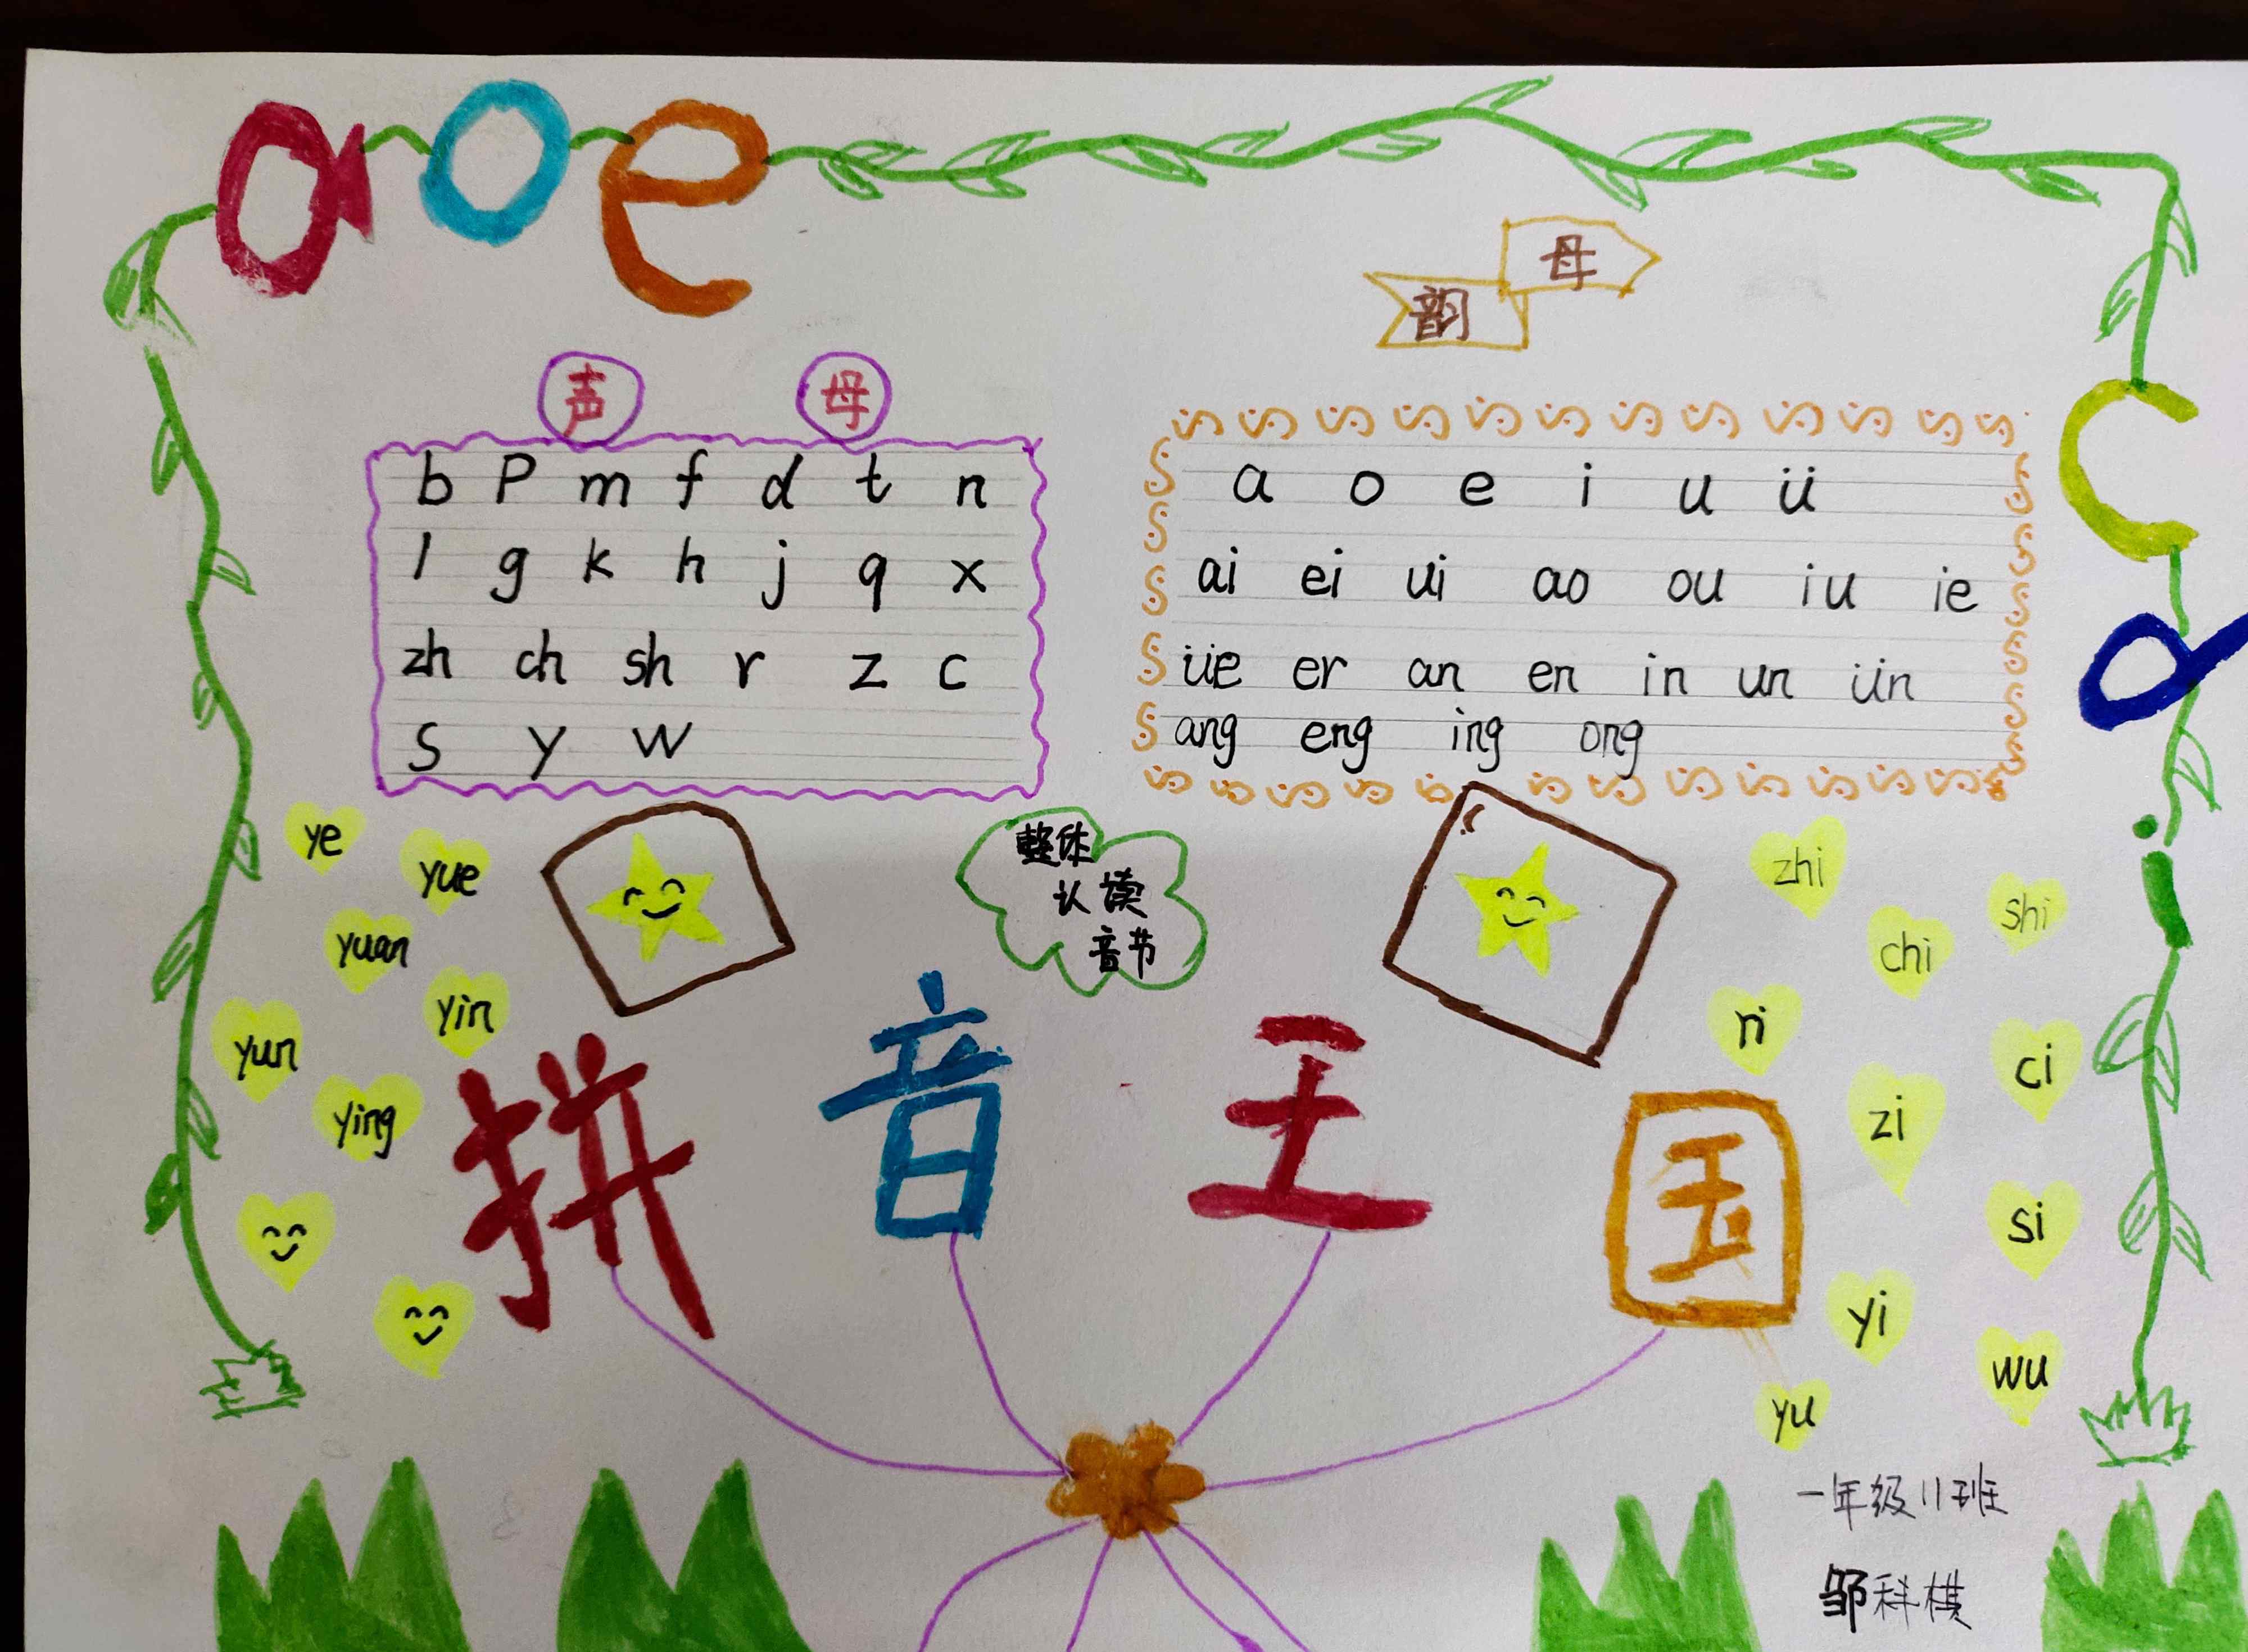 a o e
韵母
声母
b p m f d t n
l g k h j q x
zh ch sh r z c
s y w
a o e i u ü
ai ei ui ao ou iu ie
üe er an en in un ün
ang eng ing ong
C
d
i
整体
认读
音节
ye
yue
yuan
yin
yun
ying
zhi
shi
chi
ri
ci
zi
si
yi
wu
yu
拼音王国
一年级11班
邹科棋